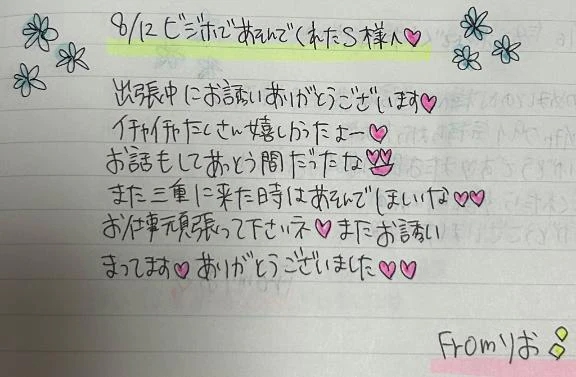 8/12 ビジホであそんでくれたS様へ♡
出張中にお誘いありがとうございます♡
イチャイチャたくさん嬉しかったよー♡
お話もしてあっとう間だったな
また三重に来た時はあそんでほしいな♡♡
お仕事頑張って下さいネ♡またお誘い
まってます♡ありがとうございました♡♡
Fromりお